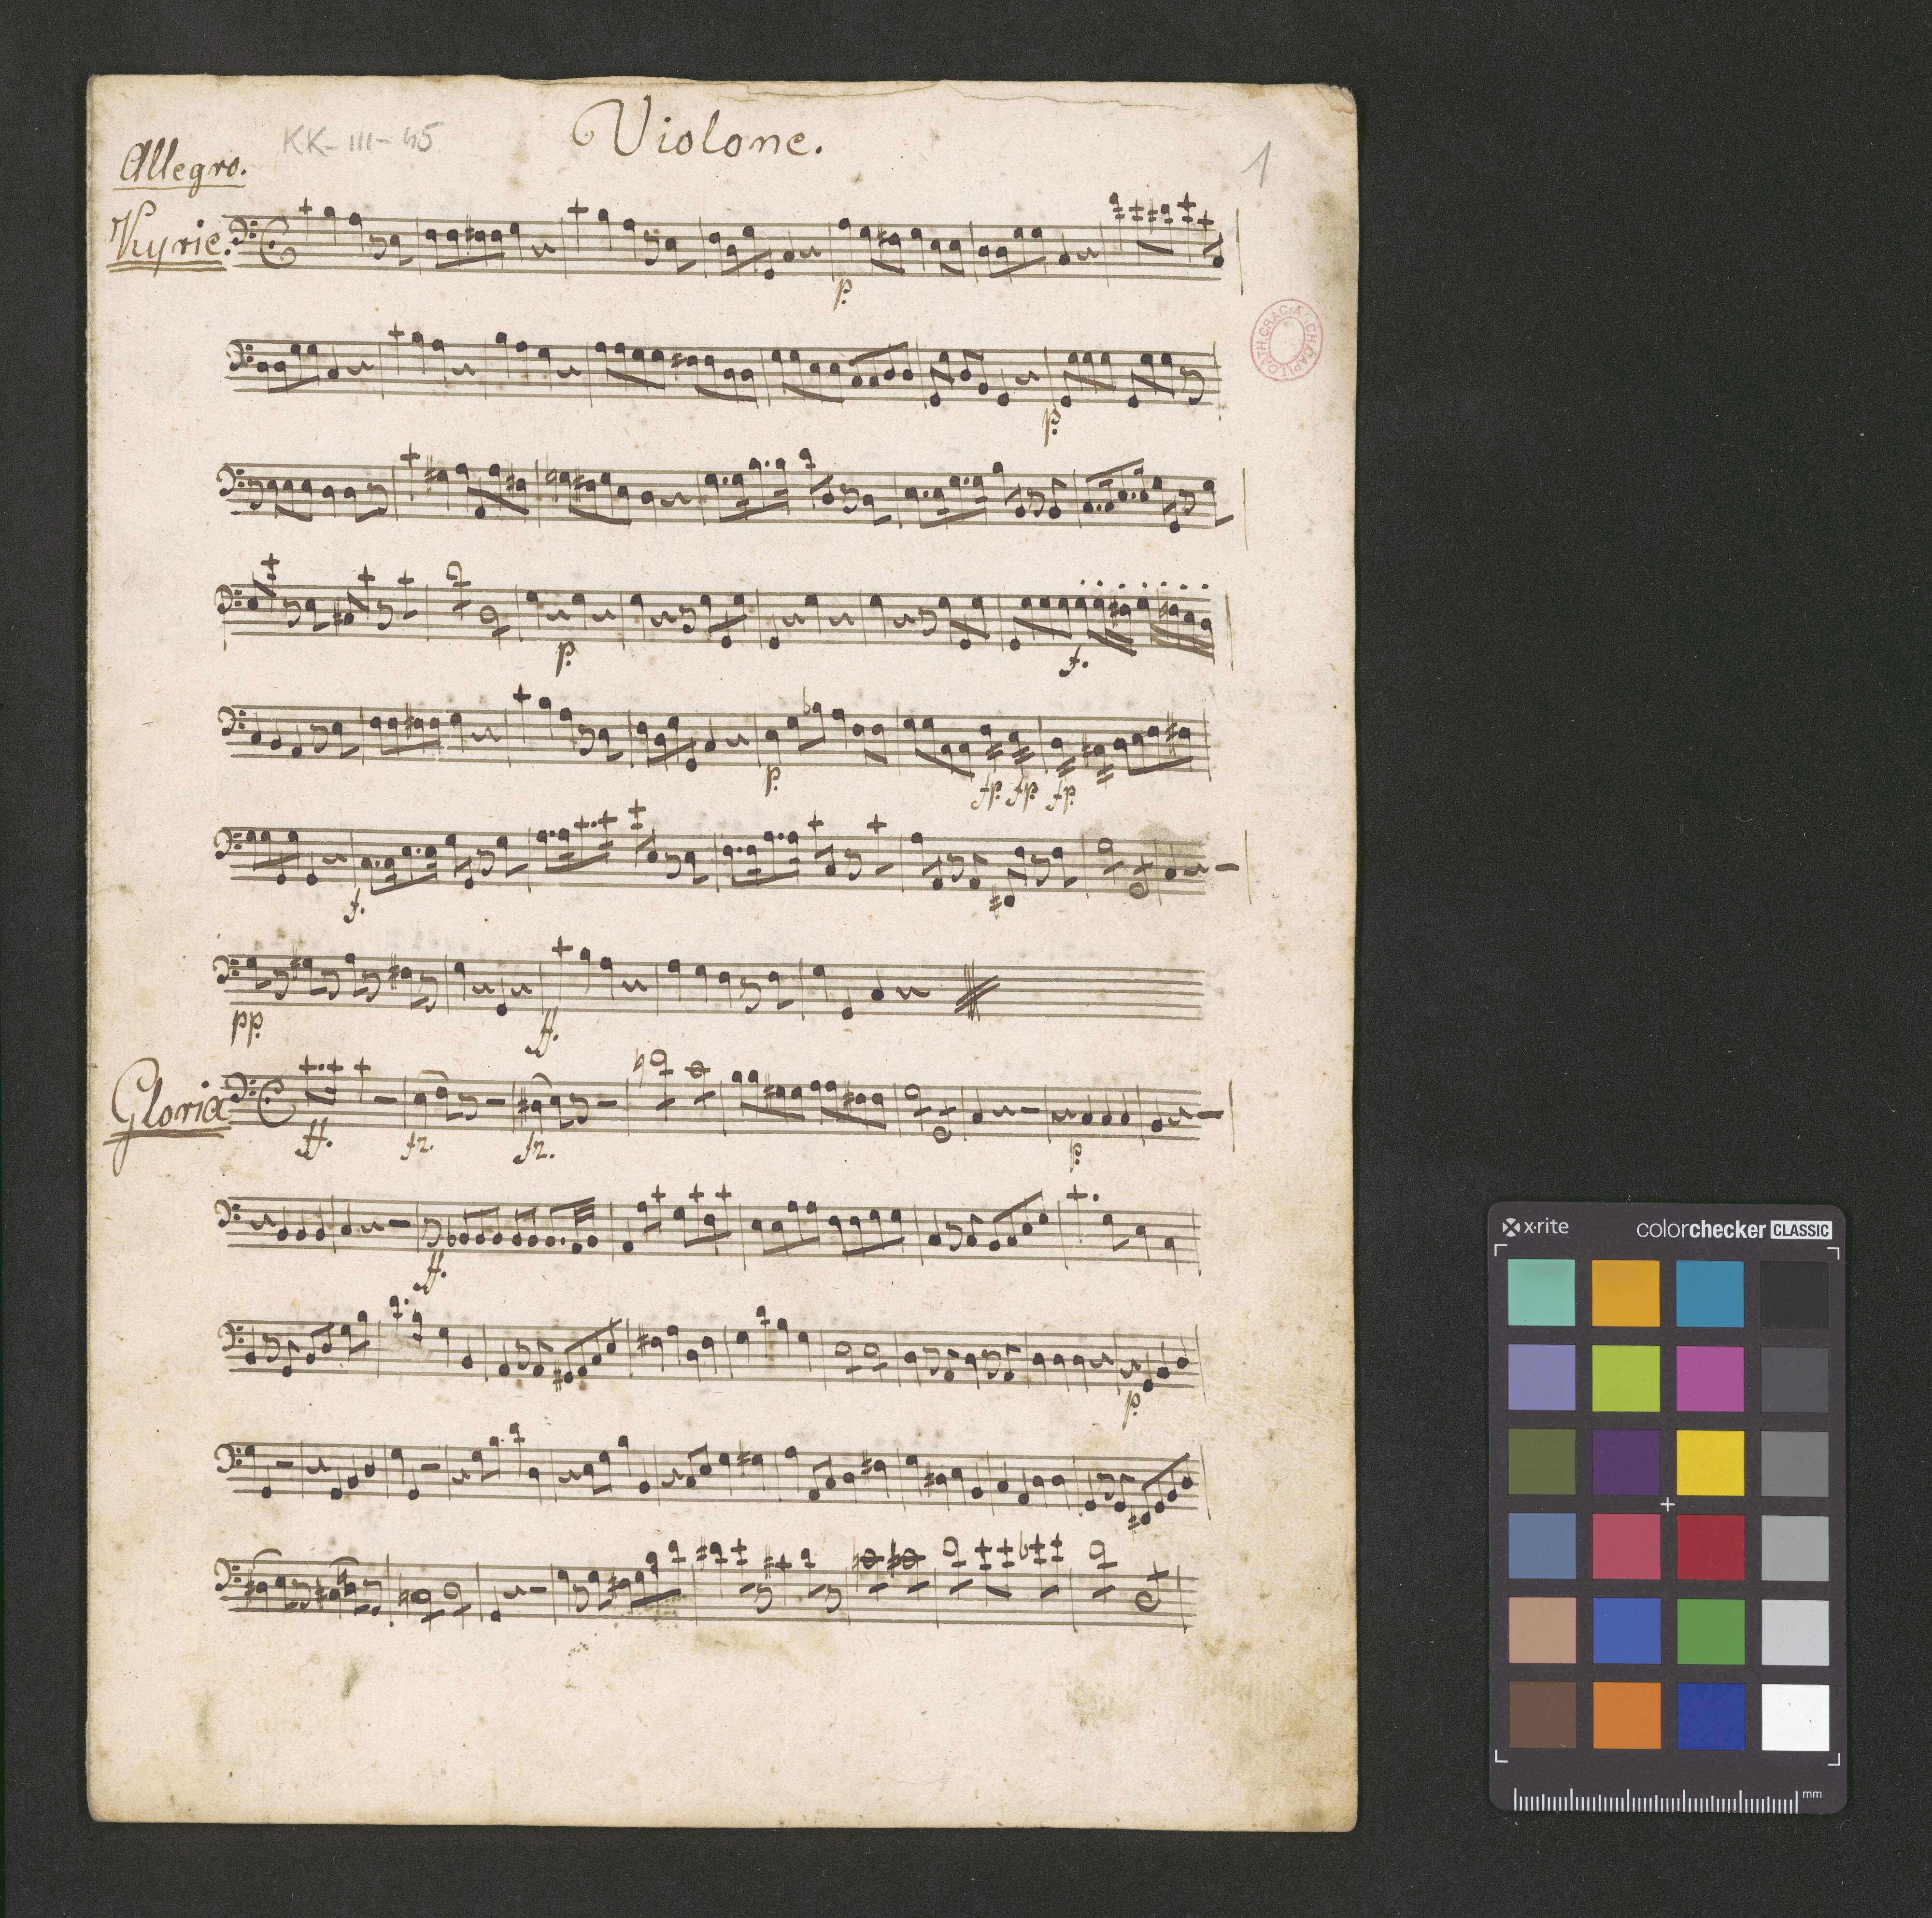 KK-III-45
Violone.
1
Allegro.
Kyrie.
p.
p.
p.
f.
p.
fp. fp. fp.
f.
pp.
ff.
Gloria
ff.
fz.
fz.
p.
ff.
p.
x·rite
colorchecker CLASSIC
mm